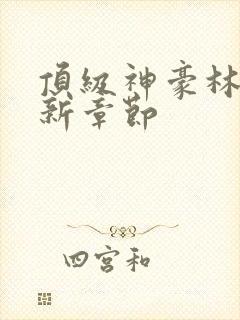 頂級神豪林
新章節
四宮和